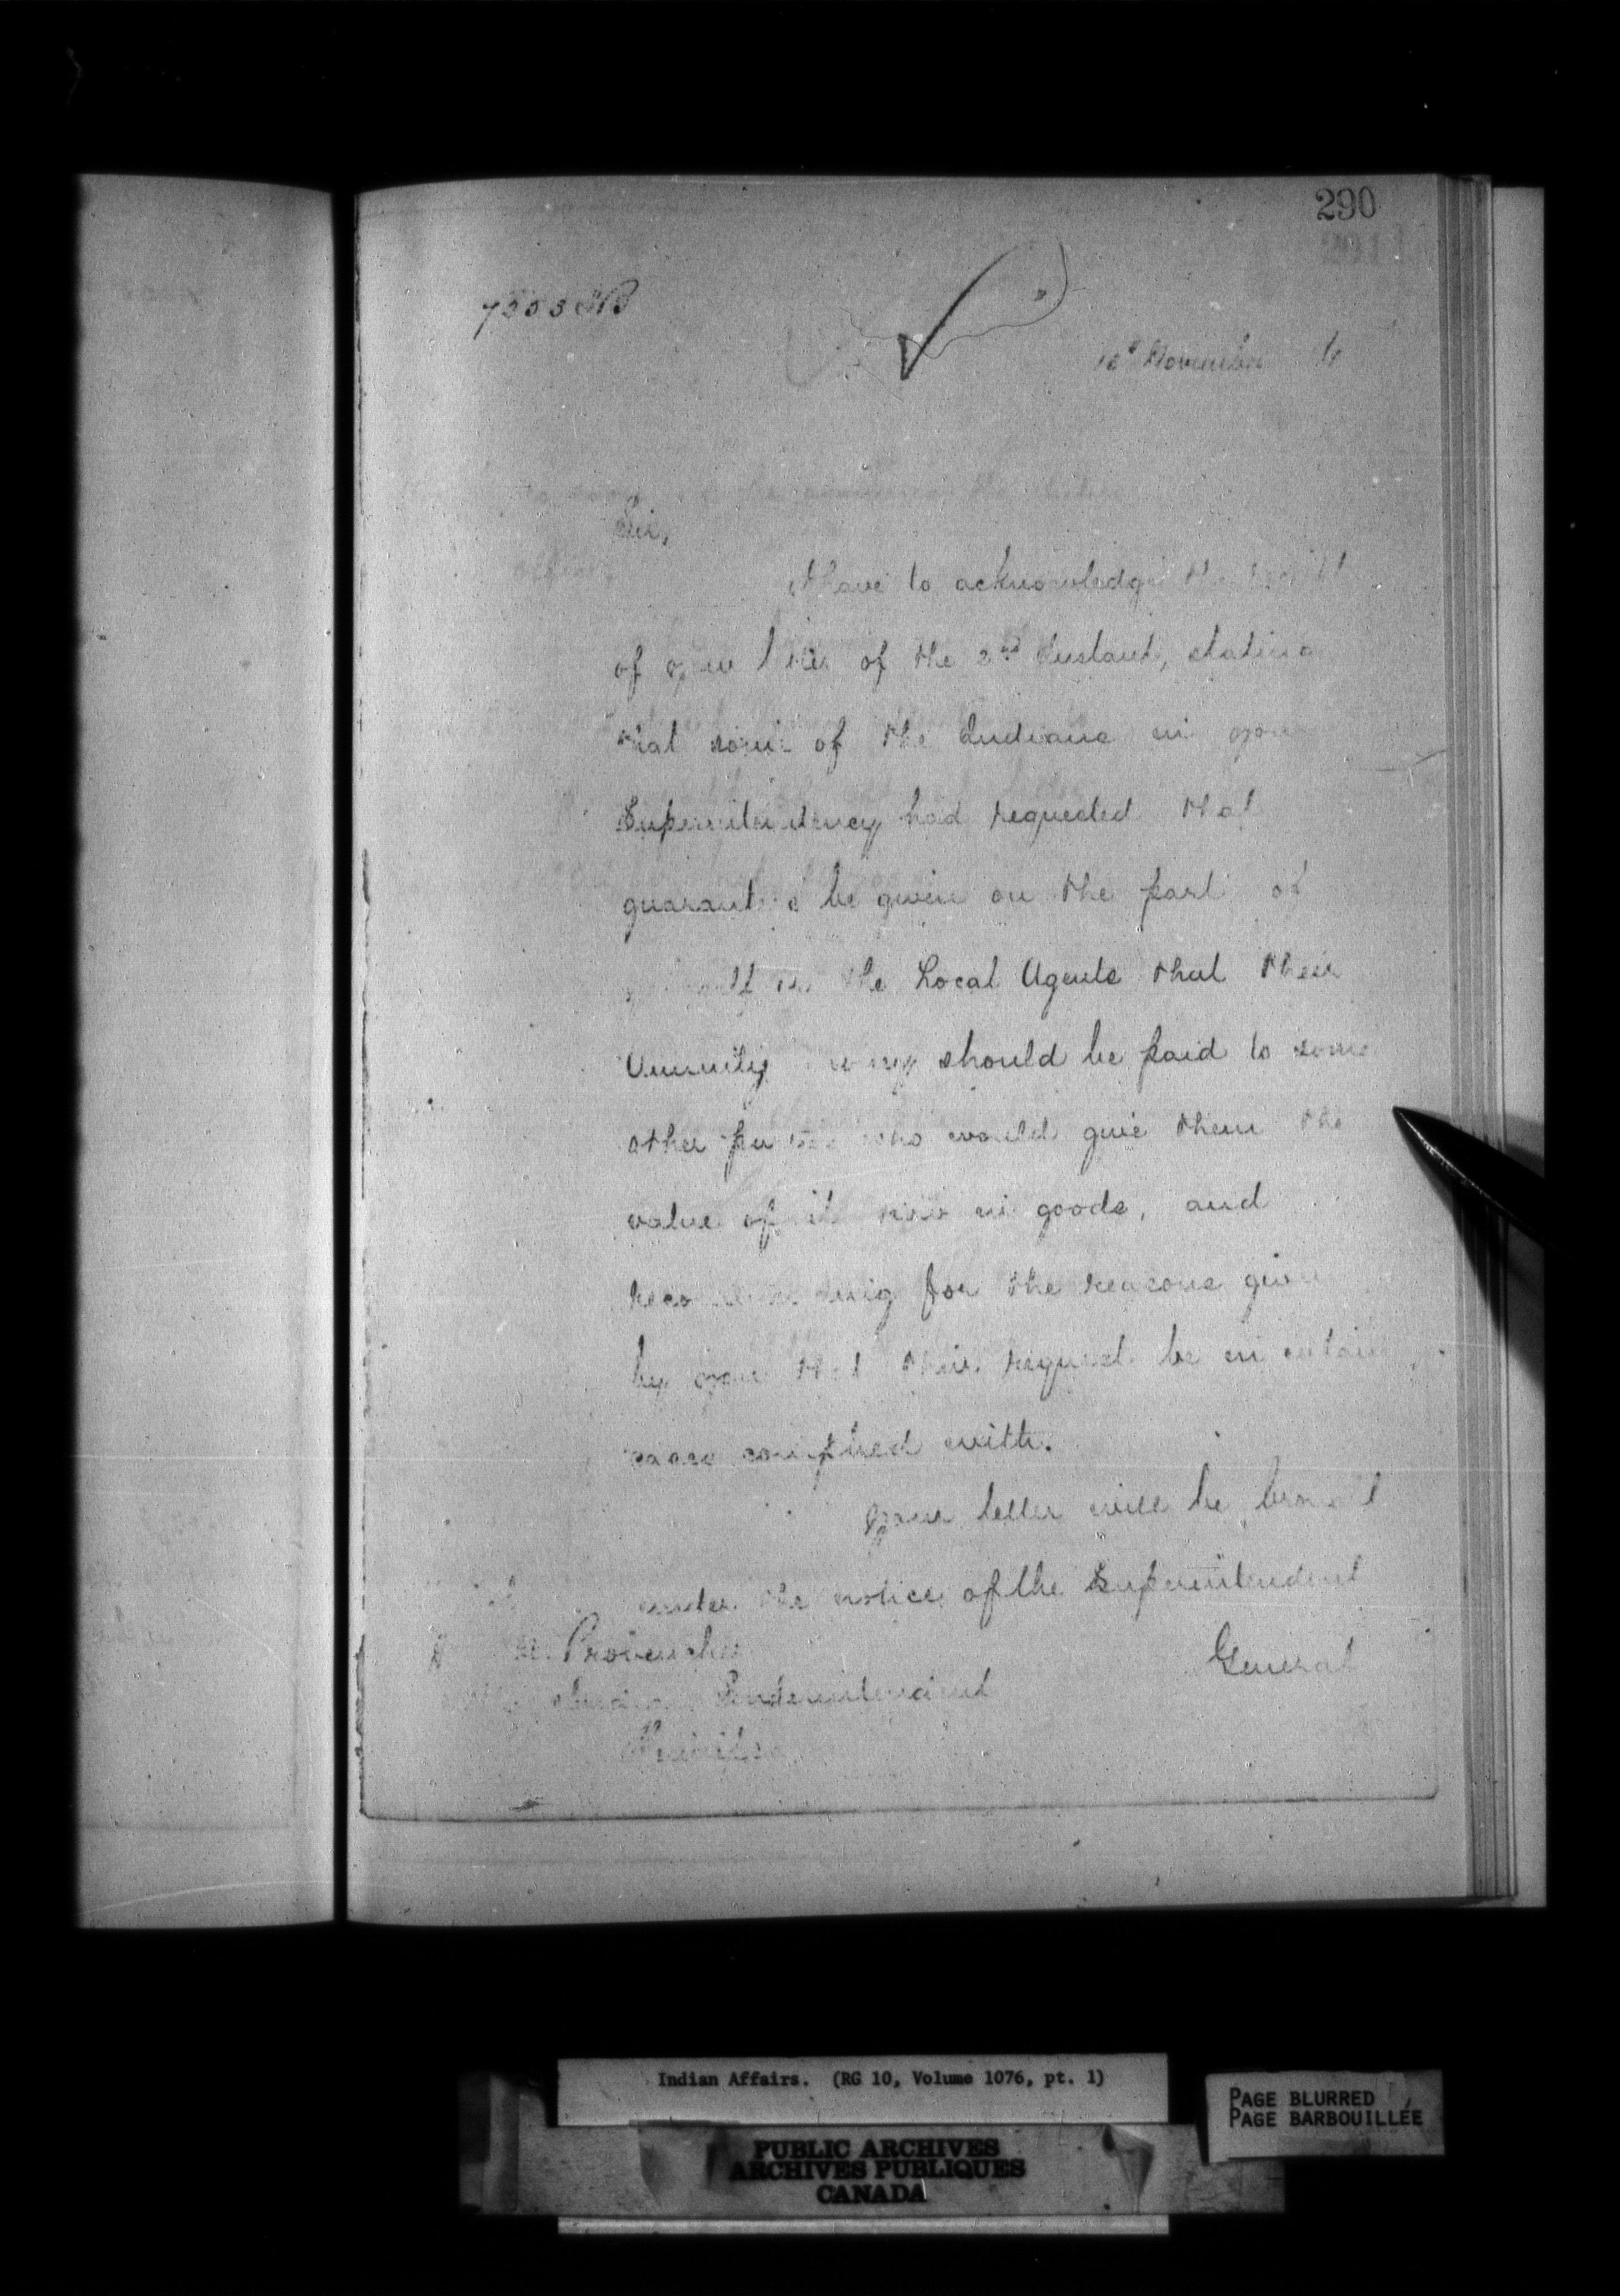 290
7303
12th November
Sir,
I have to acknowledge the receipt
of your letter of the 2nd Instant, stating
that some of the Indians in your
Superintendency had requested that
guarantee be given on the part of
the Local Agents that their
Annuity money should be paid to some
other person who would give them the
value of it now in goods, and
recommending for the reasons given
by you that their request be in certain
cases complied with.
Your letter will be brought
under the notice of the Superintendent
General
Provencher
Indian Superintendent
Indian Affairs. (RG 10, Volume 1076, pt. 1)
PAGE BLURRED
PAGE BARBOUILLÉE
PUBLIC ARCHIVES
ARCHIVES PUBLIQUES
CANADA